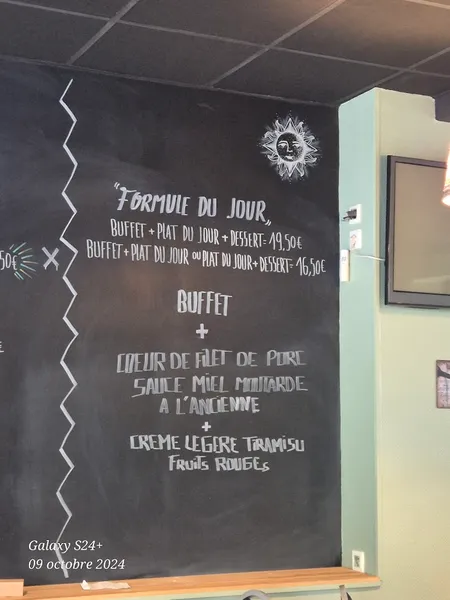 "FORMULE DU JOUR"
BUFFET + PLAT DU JOUR + DESSERT = 19,50€
BUFFET + PLAT DU JOUR OU PLAT DU JOUR + DESSERT = 16,50€
50€
BUFFET
+
COEUR DE FILET DE PORC
SAUCE MIEL MOUTARDE
A L'ANCIENNE
+
CREME LEGERE TIRAMISU
FRUITS ROUGES
Galaxy S24+
09 octobre 2024